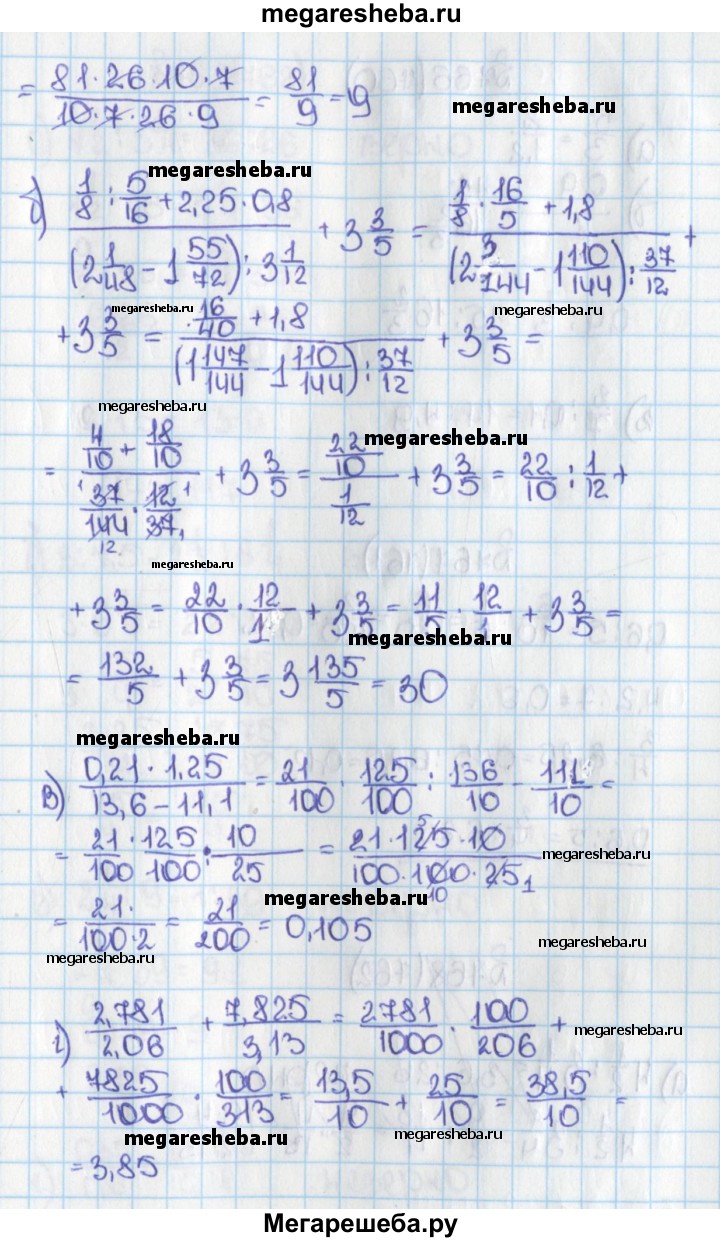 megaresheba.ru
= (81·26·10·7)/(10·7·26·9) = 81/9 = 9
megaresheba.ru
megaresheba.ru
б) (1/8 : 5/16 + 2,25·0,8)/((2 1/48 - 1 55/72) : 3 1/12) + 3 3/5 = (1/8 · 16/5 + 1,8)/((2 3/144 - 1 110/144) : 37/12) +
megaresheba.ru
megaresheba.ru
+ 3 3/5 = (16/40 + 1,8)/((1 147/144 - 1 110/144) : 37/12) + 3 3/5 =
megaresheba.ru
megaresheba.ru
= (4/10 + 18/10)/(37/144 · 12/37) + 3 3/5 = (22/10)/(1/12) + 3 3/5 = 22/10 : 1/12 +
megaresheba.ru
+ 3 3/5 = 22/10 · 12/1 + 3 3/5 = 11/5 · 12/1 + 3 3/5 =
megaresheba.ru
= 132/5 + 3 3/5 = 3 135/5 = 30
megaresheba.ru
в) (0,21·1,25)/(13,6-11,1) = 21/100 · 125/100 : 136/10 - 111/10 =
= 21/100 · 125/100 : 10/25 = (21·125·10)/(100·100·25) =
megaresheba.ru
megaresheba.ru
= 21·/(100·2) = 21/200 = 0,105
megaresheba.ru
megaresheba.ru
г) 2,781/2,06 + 7,825/3,13 = 2781/1000 · 100/206 +
megaresheba.ru
+ 7825/1000 · 100/313 = 13,5/10 + 25/10 = 38,5/10 =
megaresheba.ru
megaresheba.ru
= 3,85
megaresheba.ru
Мегарешеба.ру